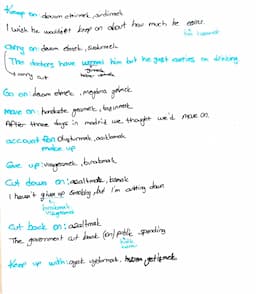 Keep on: devam etmek, sürdürmek
I wish he wouldn't keep on about how much he earns.
Carry on: devam etmek, sürdürmek
The doctors have warned him but he just carries on drinking.
carry out
Go on: devam etmek, meydana gelmek
move on: harekete geçmek, taşınmak
After three days in madrid we thought we'd move on.
account for: oluşturmak, açıklamak
make up
Give up: vazgeçmek, bırakmak
Cut down on: azaltmak, kısmak
I haven't given up smoking, but I'm cutting down
bırakmak
vazgeçmek
Cut back on: azaltmak
The government cut back (on) public spending
Keep up with: ayak uydurmak,